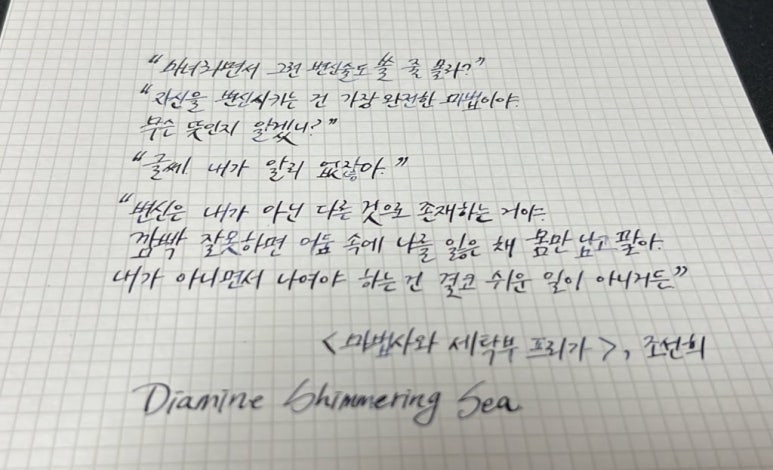 “마녀라면서 그런 변신술도 쓸 줄 몰라?”
“자신을 변신시키는 건 가장 완전한 마법이야.
무슨 뜻인지 알겠니?”
“글쎄. 내가 알리 없잖아.”
“변신은 내가 아닌 다른 것으로 존재하는 거야.
깜빡 잘못하면 어둠 속에 나를 잃은 채 몸만 남고
내가 아니면서 나여야 하는 건 결코 쉬운 일이 아니거든”
<마법사와 세탁부 프리가>, 조선희
Diamine Shimmering Sea